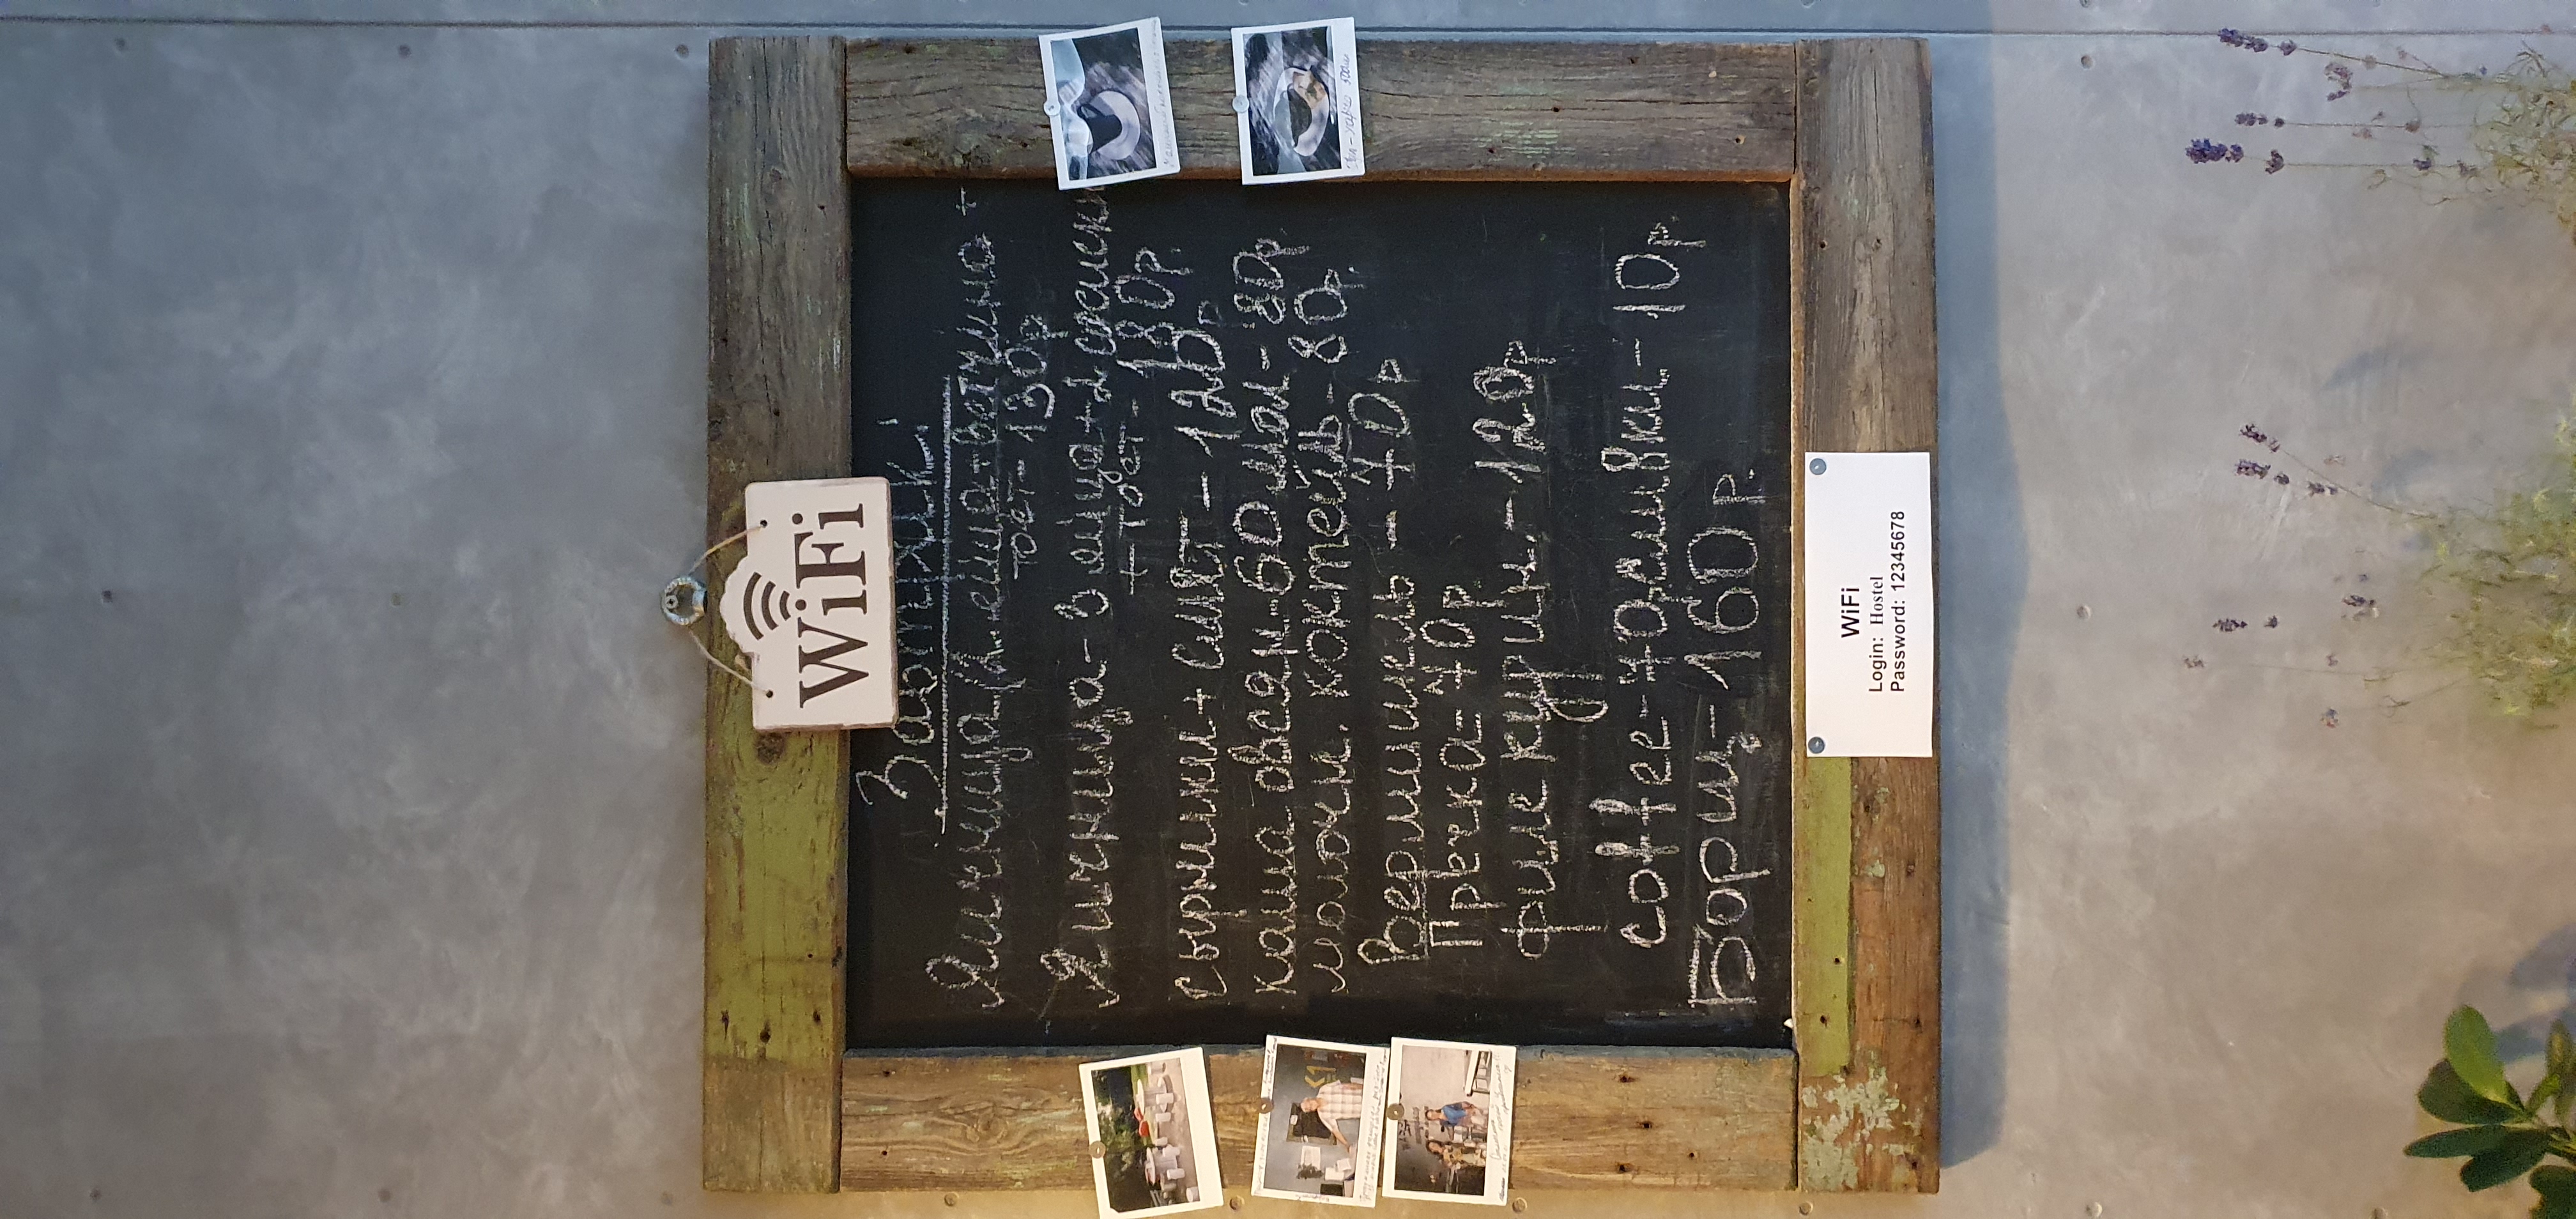 WiFi
Завтраки:
Яичница/2 яйца + ветчина +
тост - 130р
Яичница - 3 яйца + 2 сосиски
+ тост - 180р.
сырники + слив - 120р
каша овсян - 60 мол - 80р
молочн. коктейль - 80р.
Вермишель - 70р
Гречка - 70р
филе куриц. - 120р
coffee - 70р сливки - 10р
Борщ - 160р.
WiFi
Login: Hostel
Password: 12345678